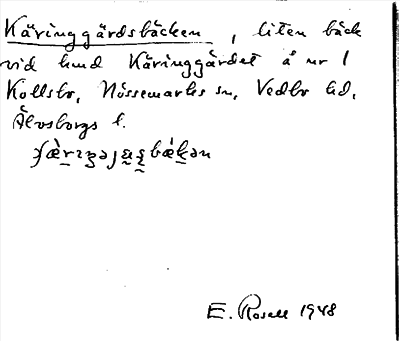 Käringgärdsbäcken, liten bäck
vid lund Käringgärdet å nr 1
Kollsbo, Nössemarks sn, Vedbo hd,
Älvsborgs l.
E. Rosell 1948